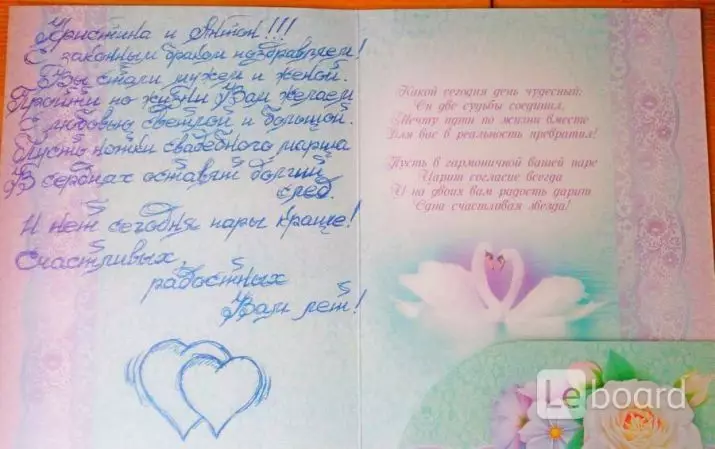 Кристина и Антон!!!
С законным браком поздравляем!
Вы стали мужем и женой.
Пройти по жизни Вам желаем
С любовью светлой и большой.
Пусть нотки свадебного марша
В сердцах оставят долгий
след.
И нет сегодня пары краше!
Счастливых,
радостных
Вам лет!
Какой сегодня день чудесный:
Он две судьбы соединил,
Мечту идти по жизни вместе
Для вас в реальность превратил!
Пусть в гармоничной вашей паре
Царит согласие всегда
И на двоих вам радость дарит
Одна счастливая звезда!
Leboard